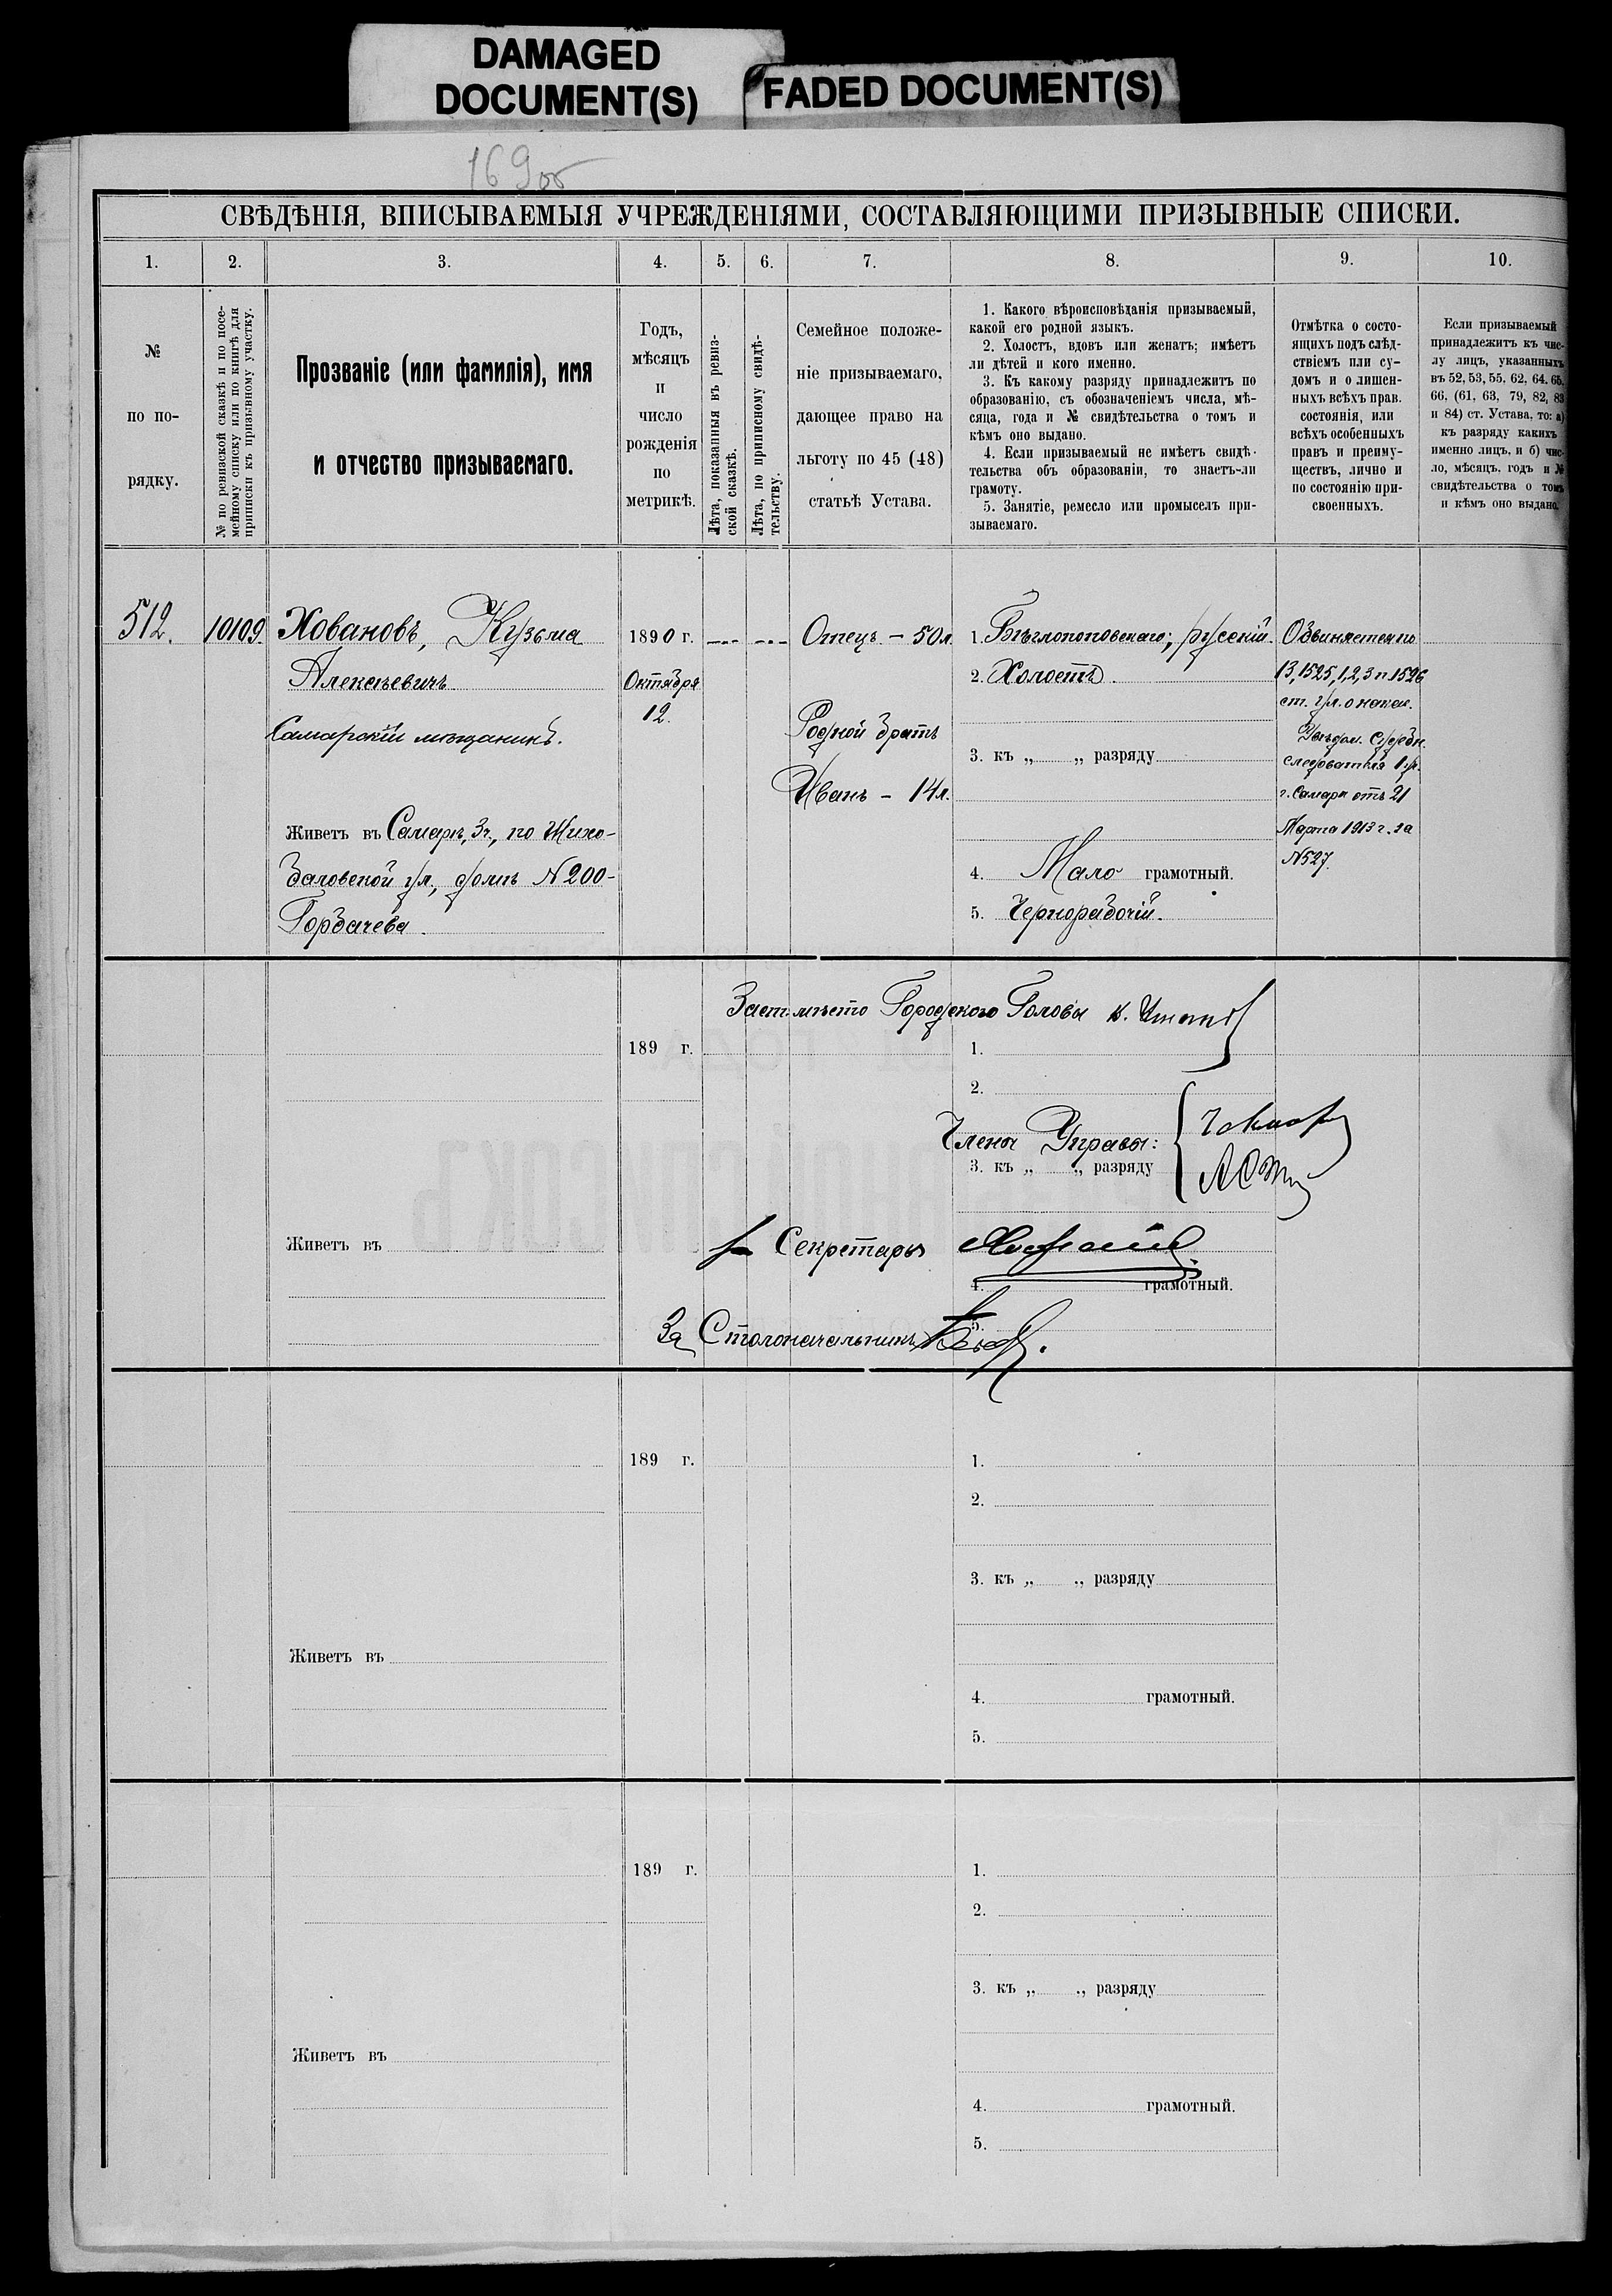 DAMAGED
DOCUMENT(S)
FADED DOCUMENT(S)
169об
СВѢДѢНІЯ, ВПИСЫВАЕМЫЯ УЧРЕЖДЕНІЯМИ, СОСТАВЛЯЮЩИМИ ПРИЗЫВНЫЕ СПИСКИ.
1. 2. 3. 4. 5. 6. 7. 8. 9. 10.
№
по по-
рядку.
№ по ревизской сказкѣ и по посе-
мейному списку или по книгѣ для
приписки къ призывному участку.
Прозваніе (или фамилія), имя
и отчество призываемаго.
Годъ,
мѣсяцъ
и
число
рожденія
по
метрикѣ.
Лѣта, показанныя въ ревиз-
ской сказкѣ.
Лѣта, по приписному свидѣ-
тельству.
Семейное положе-
ніе призываемаго,
дающее право на
льготу по 45 (48)
статьѣ Устава.
1. Какого вѣроисповѣданія призываемый,
какой его родной языкъ.
2. Холостъ, вдовъ или женатъ; имѣетъ
ли дѣтей и кого именно.
3. Къ какому разряду принадлежитъ по
образованію, съ обозначеніемъ числа, мѣ-
сяца, года и № свидѣтельства о томъ и
кѣмъ оно выдано.
4. Если призываемый не имѣетъ свидѣ-
тельства объ образованіи, то знаетъ-ли
грамоту.
5. Занятіе, ремесло или промыселъ при-
зываемаго.
Отмѣтка о состо-
ящихъ подъ слѣд-
ствіемъ или су-
домъ и о лишен-
ныхъ всѣхъ прав.
состоянія, или
всѣхъ особенныхъ
правъ и преиму-
ществъ, лично и
по состоянію при-
своенныхъ.
Если призываемый
принадлежитъ къ чис-
лу лицъ, указанныхъ
въ 52, 53, 55, 62, 64, 65,
66, (61, 63, 79, 82, 83
и 84) ст. Устава, то: а)
къ разряду какихъ
именно лицъ, и б) чис-
ло, мѣсяцъ, годъ и №
свидѣтельства о томъ
и кѣмъ оно выдано.
512.
10109.
Ховановъ, Кузьма
Алексѣевичъ
Самарскій мѣщанинъ.
Живетъ въ Самарѣ, 3ч., по Жихо-
Горбачева.
1890 г.
Октября
12.
Отецъ – 50л.
Родной братъ
Иванъ – 14л.
1. Бѣглопоповскаго; русскій.
2. Холостъ.
3. къ „ „ разряду
4. Мало грамотный.
5. Чернорабочій.
Обвиняется по
13, 1525, 1, 2, 3 п. 1526
ст. ул. о наказ.
Увѣдом. Судебн.
слѣдователя 1 уч.
г. Самары отъ 21
Марта 1913 г. за
№527.
Заст. мѣсто Городского Головы
189 г.
1.
2.
Члены Управы:
3. къ „ „ разряду
Секретарь
Живетъ въ
4. грамотный.
5.
За Столоначальника
189 г.
1.
2.
3. къ „ „ разряду
Живетъ въ
4. грамотный.
5.
189 г.
1.
2.
3. къ „ „ разряду
Живетъ въ
4. грамотный.
5.